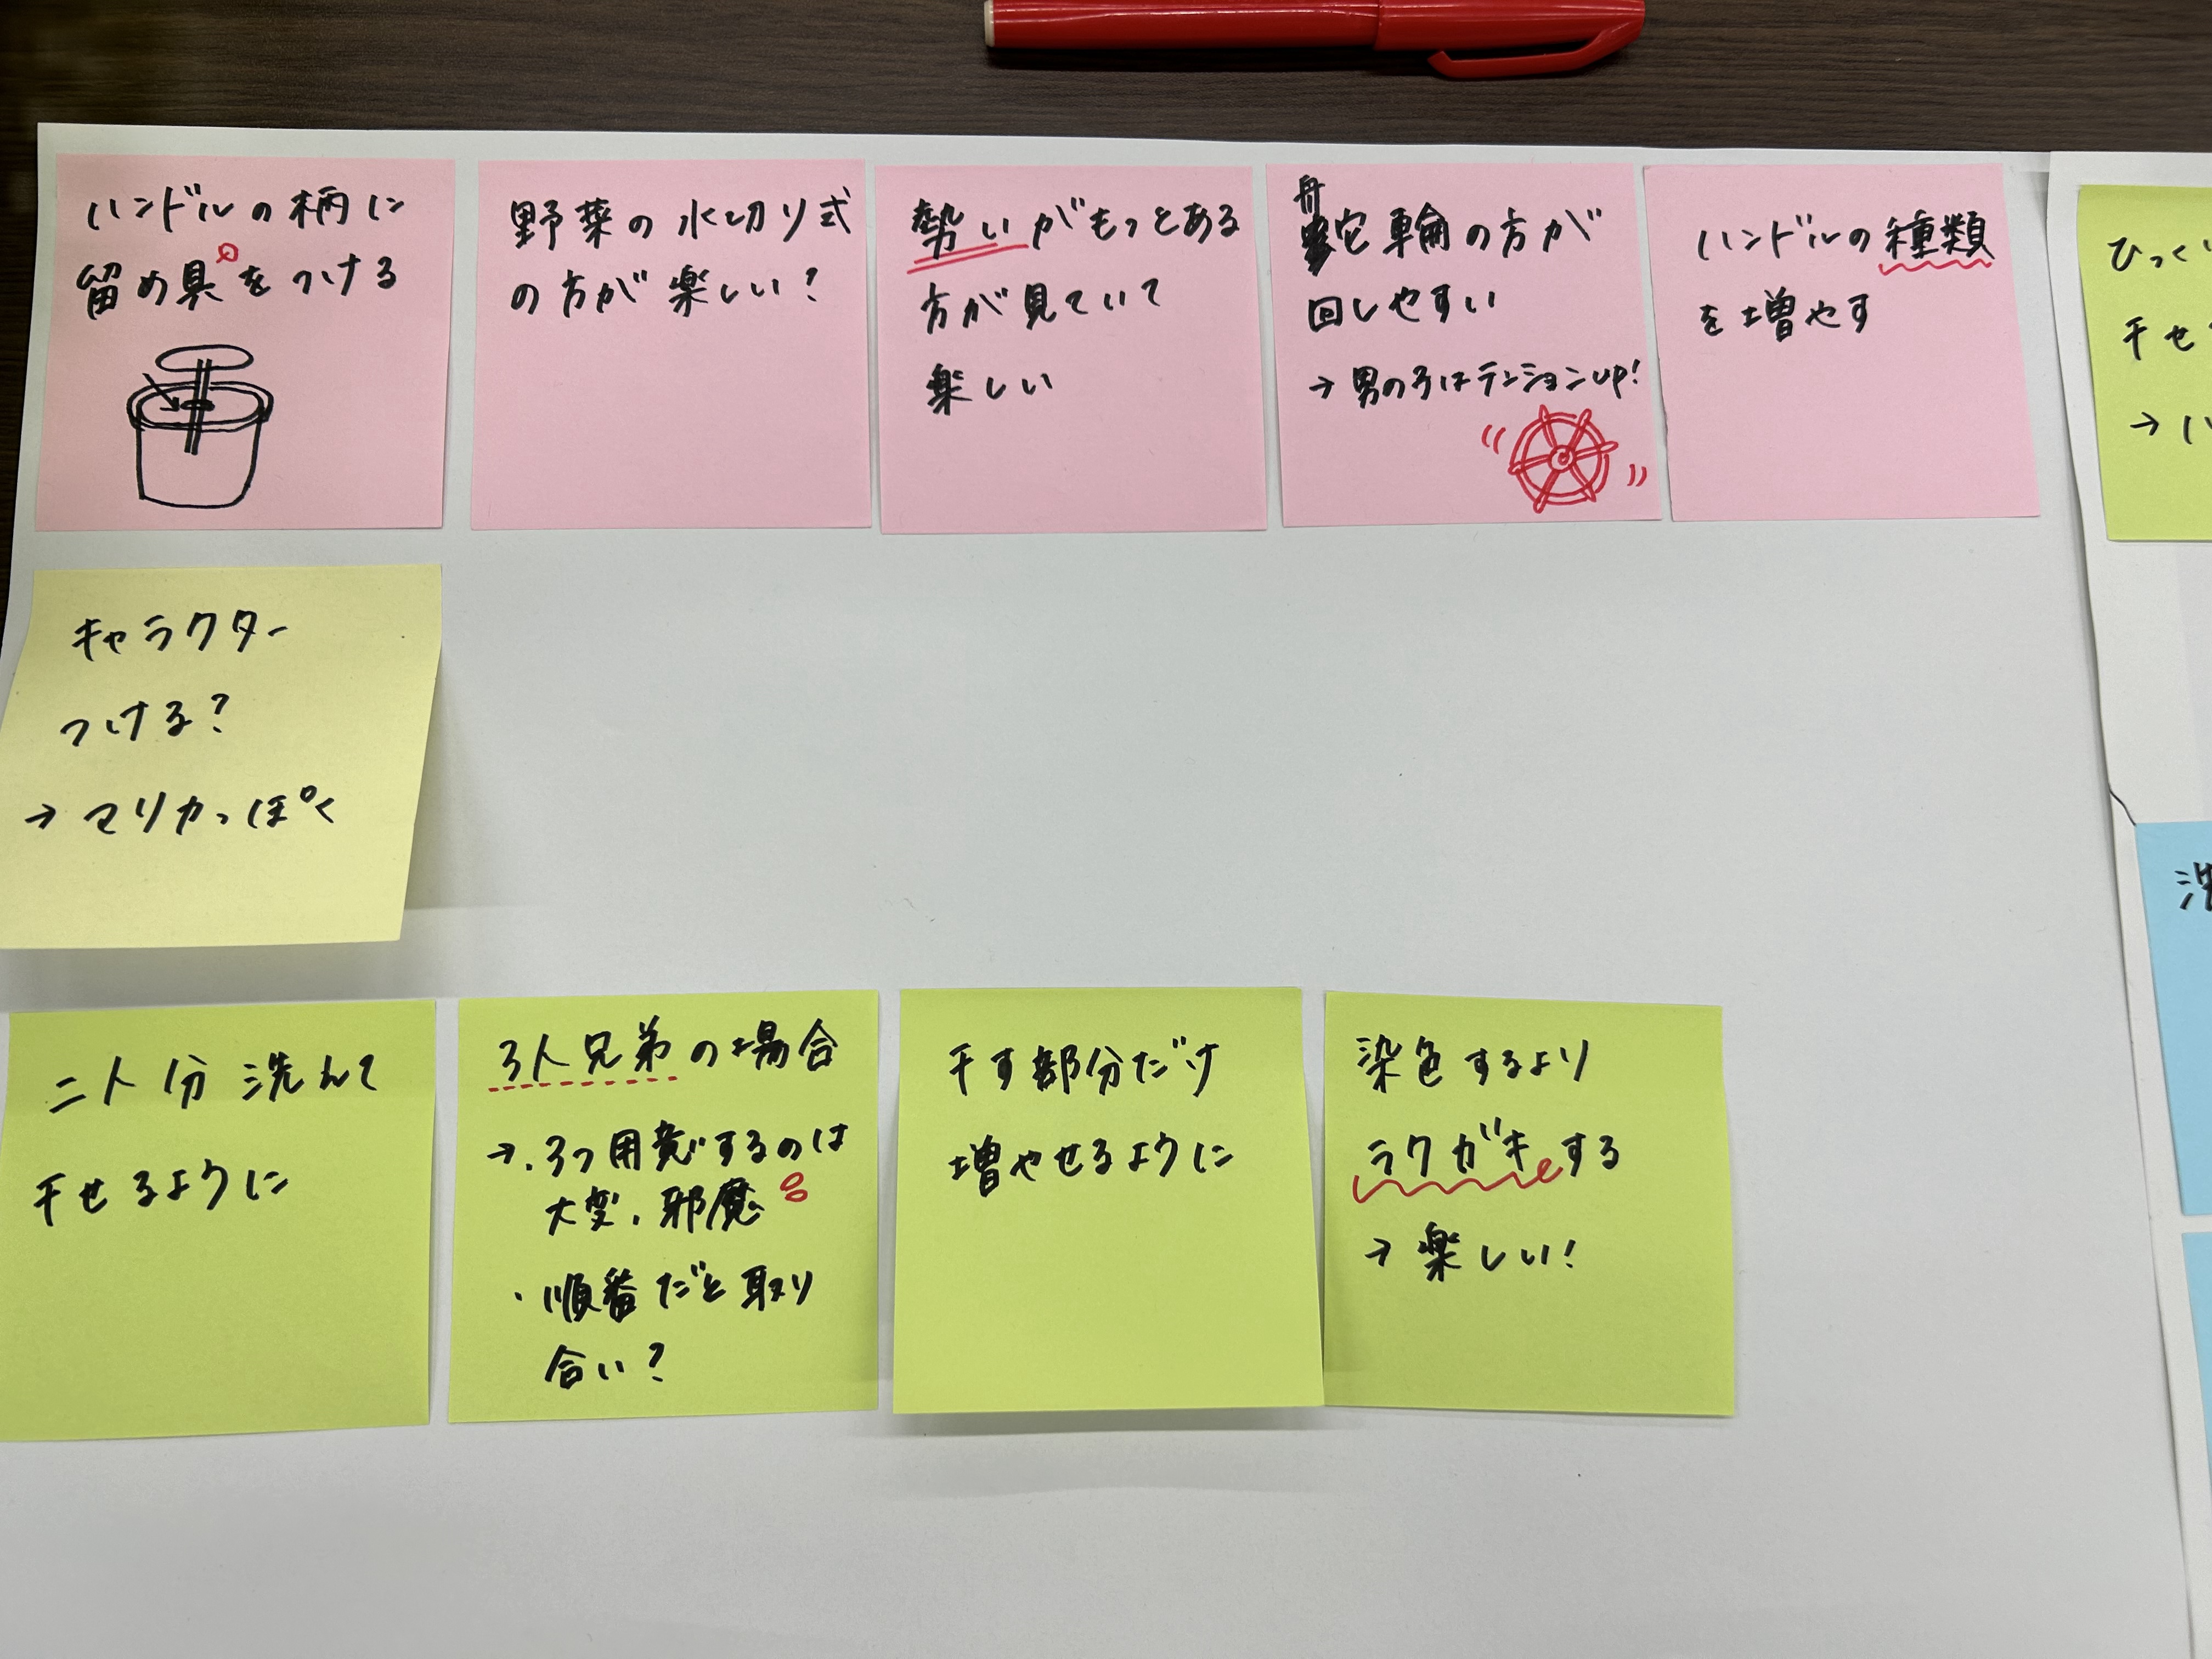 ハンドルの柄に
留め具をつける
野菜の水切り式
の方が楽しい?
勢いがもっとある
方が見ていて
楽しい
舵輪の方が
回しやすい
→男の子はテンションup!
ハンドルの種類
を増やす
キャラクター
つける?
→マリカっぽく
二人分洗って
干せるように
3人兄弟の場合
→・3つ用意するのは
大変、邪魔
・順番だと取り
合い?
干す部分だけ
増やせるように
染色するより
ラクガキする
→楽しい!
ひっく
干せ
→
洗